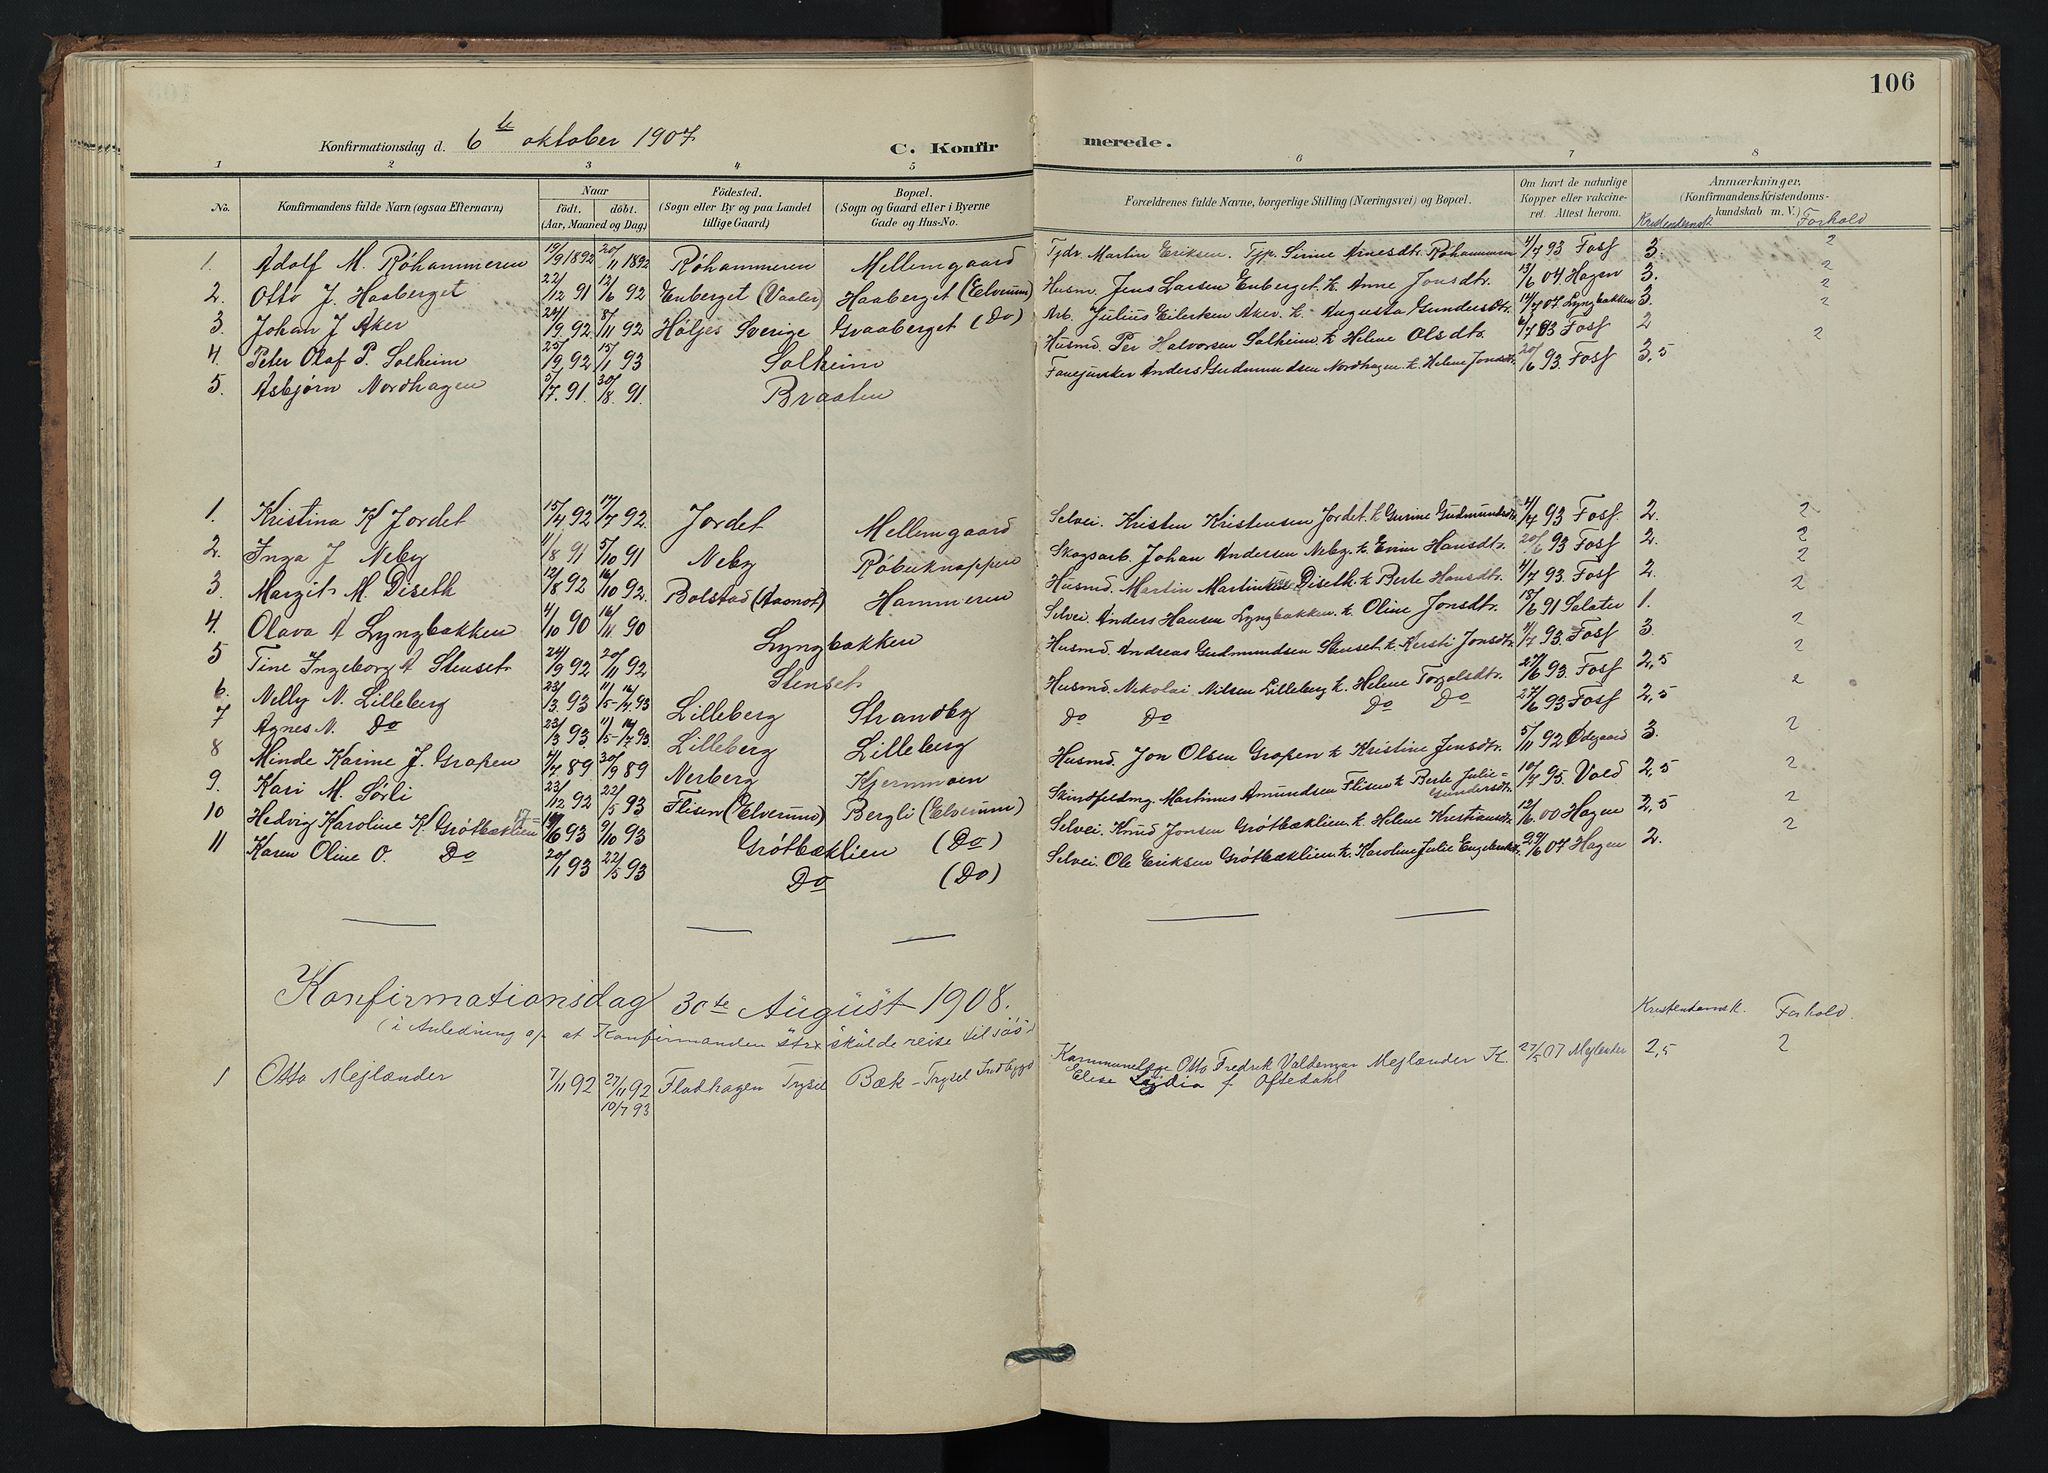 106
Konfirmationsdag d. 6te oktober 1907 C. Konfirmerede.
1 2 3 4 5 6 7 8
No. Konfirmandens fulde Navn (ogsaa Efternavn) Naar födt. döbt. (Aar, Maaned og Dag) Födested. (Sogn eller By og paa Landet tillige Gaard) Bopæl. (Sogn og Gaard eller i Byerne Gade og Hus-No. Forældrenes fulde Navne, borgerlige Stilling (Næringsvei) og Bopæl. Om havt de naturlige Kopper eller vakcineret. Attest herom. Anmærkninger, (Konfirmandens Kristendomskundskab m. V.) Kristendomsk. Forhold
1. Adolf M. Röhammeren 19/9 1892 20/11 1892 Röhammeren Mellemgaard Tjdr. Martin Eriksen. Tjp. Sirine Arnesdtr. Röhammeren 4/7 93 Fosf 3. 2
2. Otto J. Haaberget 22/12 91 12/6 92 Enberget (Vaaler) Haaberget (Elverum) Husm. Jens Larsen Enberget. k. Anne Jonsdtr. 13/6 04 Hagen 3. 2
3. Johan J Aker 24/9 92 8/11 92 Höljes Sverige Graaberget (Do) Arb. Julius Eilertsen Aker. k. Augusta Gundersdtr. 14/7 07 Lyngbakken 3. 2
4. Peter Olaf P. Solheim 25/9 92 15/1 93 Solheim Husmd. Per Halvorsen Solheim k Helene Olsdtr. 4/7 93 Fosf 2 2
5. Asbjørn Nordhagen 5/7. 91. 30/8. 91. Braaten Fanejunker Anders Gudmundsen Nordhagen. k. Helene Jonsdtr. 20/6 93. Fosf 3,5 2
1. Kristina K Jordet 15/4 92 17/7 92. Jordet Mellemgaard Selvei. Kristen Kristensen Jordet. k Gurine Gudmundsdtr. 4/7 93 Fosf. 2. 2
2. Inga J Neby 4/8 91 5/10 91 Neby Röbuknappen Skogsarb. Johan Andersen Neby. k. Eline Hansdtr. 20/6 93 Fosf 2. 2
3. Margit M. Diseth 12/8 92 16/10 92. Bolstad (Aasnes) Hammeren Husmd. Martin Martinsen Diseth. k Berte Hansdtr. 4/7 93. Fosf 2. 2
4. Olava A Lyngbakken 4/10 90 16/11. 90 Lyngbakken Selvei. Anders Hansen Lyngbakken. k. Oline Jonsdtr. 15/6 91 Salater 1. 2
5 Tine Ingeborg A Stenset 24/9 92 20/11 92 Stenset Husmd. Andreas Gudmundsen Stenset k. Kersti Jonsdtr. 4/7 93. Fosf 3. 2
6. Nelly N. Lilleberg 23/3. 93 11/5-16/7. 93 Lilleberg Strandby Husmd. Nikolai Nilsen Lilleberg k. Helene Torgalsdtr. 27/6 93. Fosf 2,5 2
7 Agnes N. Do 23/3 93. 11/5-16/7 93. Lilleberg Lilleberg Do Do Do Do 27/6 93 Fosf 2,5 2
8 Minde Karine J. Grafsen 4/7 89 30/9 89 Nerberg Kjernmoen Husmd. Jon Olsen Grafsen k Kristine Jensdtr. 5/11 92 Ödegaard 3. 2
9. Kari M. Sörli 23/12 92 22/5 93 Flisen (Elverum) Bergli (Elverum) Skindfeldmg. Martinus Amundsen Flisen k Berte Julie Gundersdtr. 10/7 95. Vold 2,5 2
10 Hedvig Karoline K. Grötbæklien 17/6 93 9/10 93 Grötbæklien (Do) Selvei. Knud Jonsen Grötbæklien. k. Helene Kristiansdtr. 12/6. 00 Hagen 2,5 2
11 Karen Oline O. Do 20/1 93 22/5 93 Do (Do) Selvei. Ole Eriksen Grötbæklien. k. Karoline Julie Engebretsdtr. 29/6 07 Hagen 2. 2
Konfirmationsdag 30te August 1908. Kristendomsk. Forhold.
(i Anledning af at Konfirmanden skulde reise til sjös.
1 Otto Mejlænder 7/11 92 27/11 92 Flodhagen Trysil Bæk - Trysil Indbygd Kommunelæge Otto Fredrik Valdemar Mejlænder K. 27/5 07 Mejlænder 2,5 2
10/7 93 Elise Lydia f Oftedahl